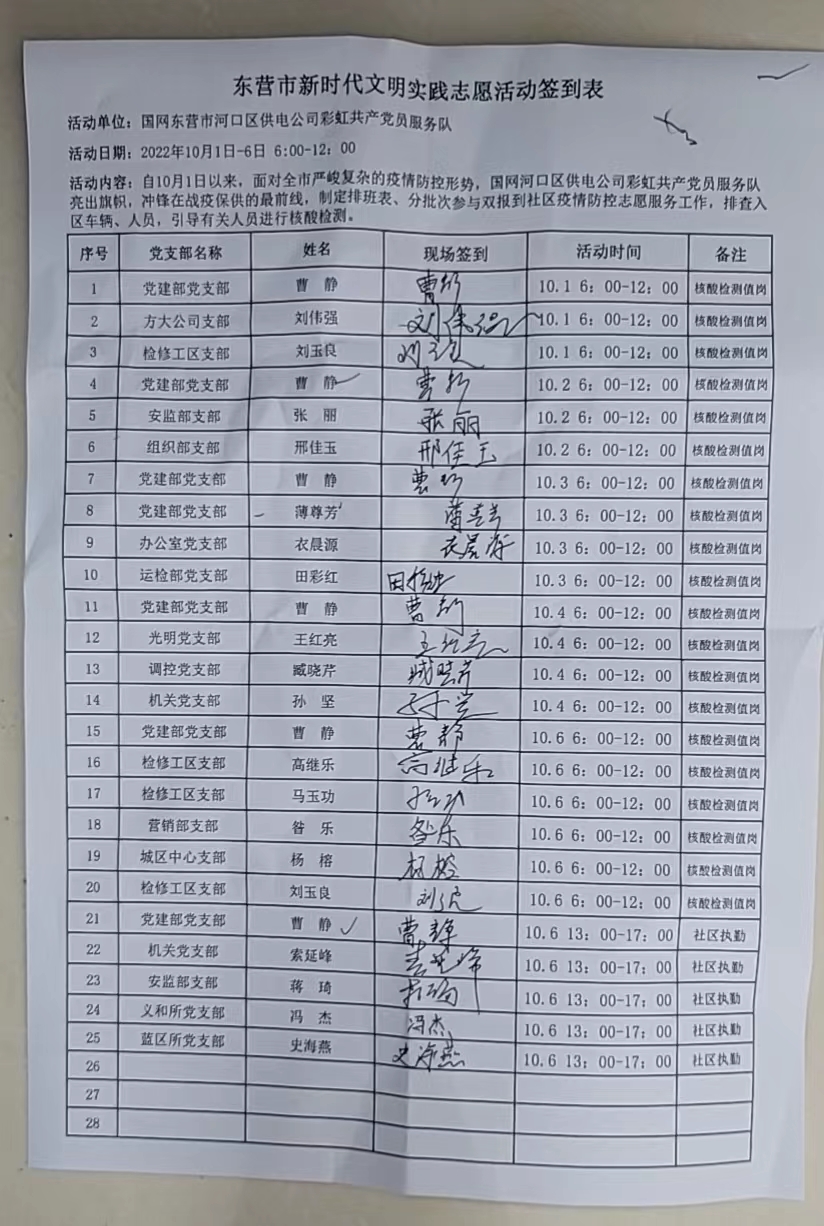 东营市新时代文明实践志愿活动签到表
活动单位：国网东营市河口区供电公司彩虹共产党员服务队
活动日期：2022年10月1日-6日 6:00-12：00
活动内容：自10月1日以来，面对全市严峻复杂的疫情防控形势，国网河口区供电公司彩虹共产党员服务队
亮出旗帜，冲锋在战疫保供的最前线，制定排班表、分批次参与双报到社区疫情防控志愿服务工作，排查入
区车辆、人员，引导有关人员进行核酸检测。
序号 党支部名称 姓名 现场签到 活动时间 备注
1 党建部党支部 曹 静 曹静 10.1 6：00-12：00 核酸检测值岗
2 方大公司支部 刘伟强 刘伟强 10.1 6：00-12：00 核酸检测值岗
3 检修工区支部 刘玉良 刘玉良 10.1 6：00-12：00 核酸检测值岗
4 党建部党支部 曹 静 曹静 10.2 6：00-12：00 核酸检测值岗
5 安监部支部 张 丽 张丽 10.2 6：00-12：00 核酸检测值岗
6 组织部支部 邢佳玉 邢佳玉 10.2 6：00-12：00 核酸检测值岗
7 党建部党支部 曹 静 曹静 10.3 6：00-12：00 核酸检测值岗
8 党建部党支部 薄尊芳 薄尊芳 10.3 6：00-12：00 核酸检测值岗
9 办公室党支部 衣晨源 衣晨源 10.3 6：00-12：00 核酸检测值岗
10 运检部党支部 田彩红 田彩红 10.3 6：00-12：00 核酸检测值岗
11 党建部党支部 曹 静 曹静 10.4 6：00-12：00 核酸检测值岗
12 光明党支部 王红亮 王红亮 10.4 6：00-12：00 核酸检测值岗
13 调控党支部 臧晓芹 臧晓芹 10.4 6：00-12：00 核酸检测值岗
14 机关党支部 孙 坚 孙坚 10.4 6：00-12：00 核酸检测值岗
15 党建部党支部 曹 静 曹静 10.6 6：00-12：00 核酸检测值岗
16 检修工区支部 高继乐 高继乐 10.6 6：00-12：00 核酸检测值岗
17 检修工区支部 马玉功 10.6 6：00-12：00 核酸检测值岗
18 营销部支部 昝 乐 昝乐 10.6 6：00-12：00 核酸检测值岗
19 城区中心支部 杨 榕 杨榕 10.6 6：00-12：00 核酸检测值岗
20 检修工区支部 刘玉良 刘玉良 10.6 6：00-12：00 核酸检测值岗
21 党建部党支部 曹 静 曹静 10.6 13：00-17：00 社区执勤
22 机关党支部 索延峰 索延峰 10.6 13：00-17：00 社区执勤
23 安监部支部 蒋 琦 10.6 13：00-17：00 社区执勤
24 义和所党支部 冯 杰 冯杰 10.6 13：00-17：00 社区执勤
25 蓝区所党支部 史海燕 史海燕 10.6 13：00-17：00 社区执勤
26
27
28